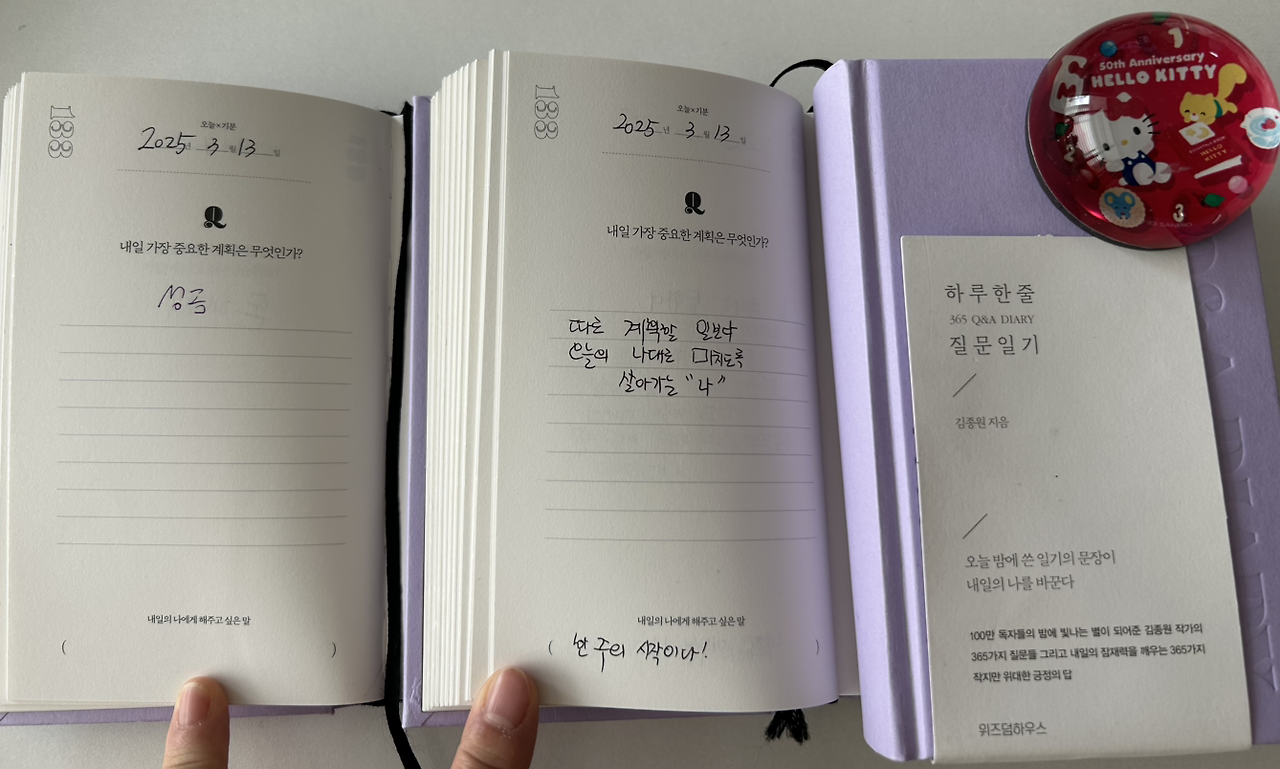 188
오늘×기분
2025년 3월 13일
Q
내일 가장 중요한 계획은 무엇인가?
성금
내일의 나에게 해주고 싶은 말
( )
188
오늘×기분
2025년 3월 13일
Q
내일 가장 중요한 계획은 무엇인가?
따로 계획할 일보다
오늘의 나대로 미치도록
살아가는 “나”
내일의 나에게 해주고 싶은 말
( 한 주의 시작이다! )
50th Anniversary
HELLO KITTY
1
3
HELLO
KITTY
하루한줄
365 Q&A DIARY
질문일기
김종원 지음
오늘 밤에 쓴 일기의 문장이
내일의 나를 바꾼다
100만 독자들의 밤에 빛나는 별이 되어준 김종원 작가의
365가지 질문들 그리고 내일의 잠재력을 깨우는 365가지
작지만 위대한 긍정의 답
위즈덤하우스